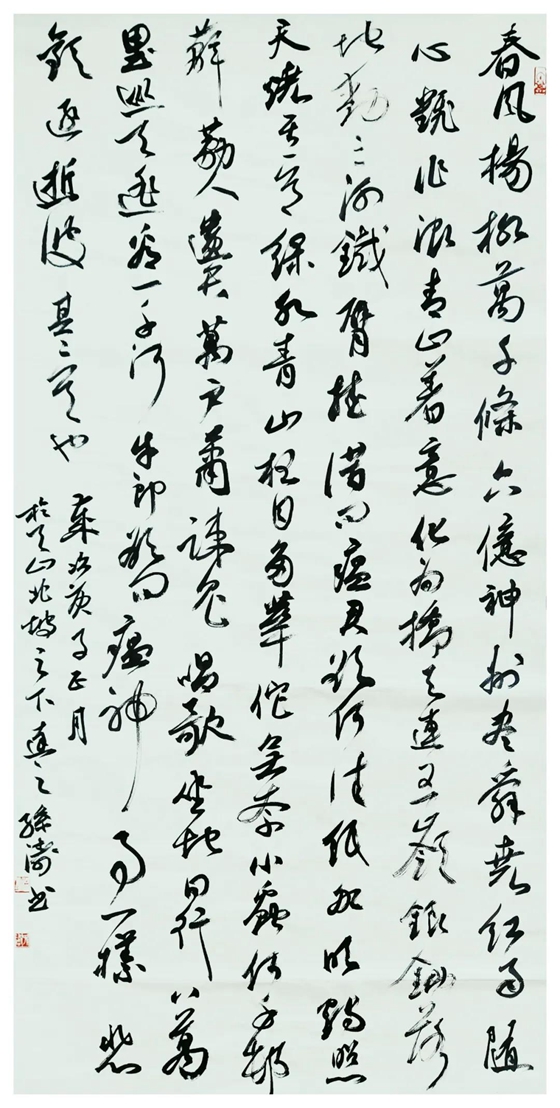 春風楊柳萬千條六億神州盡舜堯紅雨隨
心翻作浪青山著意化為橋天連五嶺銀鋤落
地動三河鐵臂搖借問瘟君欲何往紙船明燭照
天燒其一綠水青山枉自多華佗無奈小蟲何千村
薜荔人遺矢萬戶蕭疏鬼唱歌坐地日行八萬
里巡天遙看一千河牛郎欲問瘟神事一樣悲
歡逐逝波其二也
歲次庚子正月
於天山北坡之下書